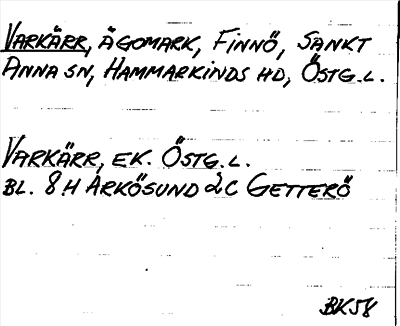 VARKÄRR, ÄGOMARK, FINNÖ, SANKT
ANNA SN, HAMMARKINDS HD, ÖSTG.L.
VARKÄRR, EK. ÖSTG.L.
BL. 8H ARKÖSUND 2C GETTERÖ
BK58